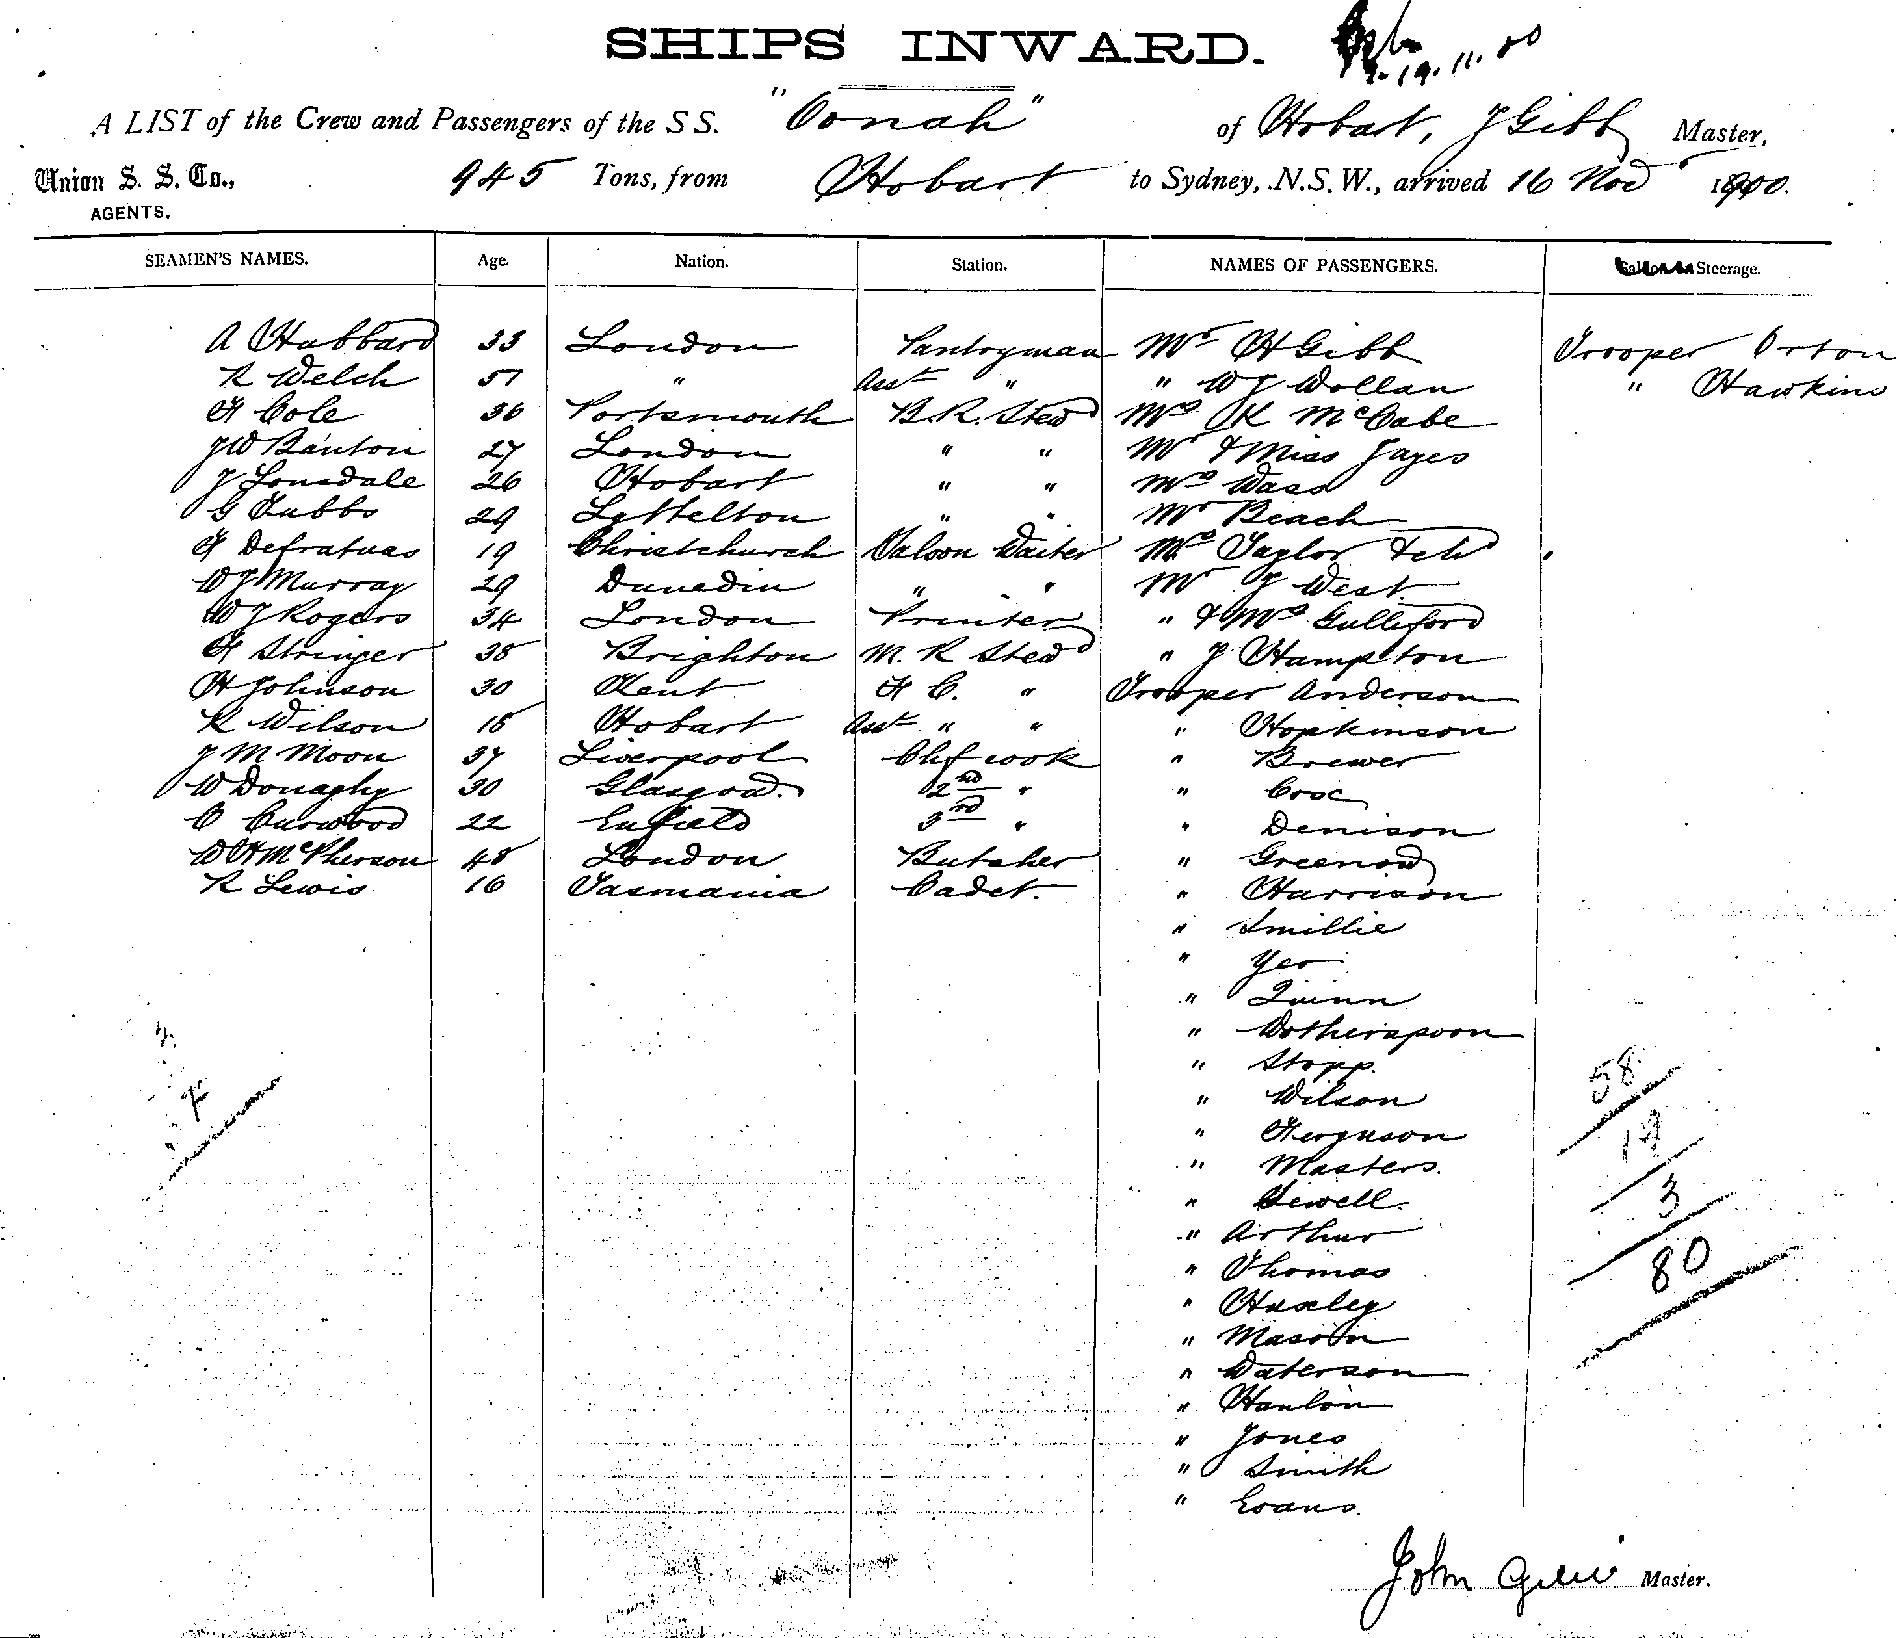 SHIPS INWARD.
19.11.00
A LIST of the Crew and Passengers of the S S. "Oonah" of Hobart, J Gibb Master,
Union S. S. Co., 945 Tons, from Hobart to Sydney, N.S.W., arrived 16 Nov 1900.
AGENTS.
SEAMEN'S NAMES. Age. Nation. Station. NAMES OF PASSENGERS. Steerage.
A Hubbard 33 London Pantryman Mr H Gibb Trooper Orton
R Welch 51 " Asst " " W J Wollan " Hawkins
F Cole 36 Portsmouth B. R. Stewd Mrs K McCabe
J W Banton 27 London " " Mr & Miss Jayes
J Lonsdale 26 Hobart " " Mrs Wass
G Tubbs 29 Lyttelton " " Mr Beach
F Defratuas 19 Christchurch Saloon Waiter Mrs Taylor & chd
W J Murray 29 Dunedin " " Mr J West
W J Rogers 34 London Printer " & Mrs Gulliford
F Stringer 38 Brighton M. R Stewd " J Hampton
H Johnson 30 Kent F C. " Trooper Anderson
R Wilson 18 Hobart Asst " " " Hopkinson
J M Moon 37 Liverpool Chf cook " Brewer
W Donaghy 30 Glasgow. 2nd " "
C Curwood 22 Enfield 3rd " " Denison
W H McPherson 48 London Butcher " Greenow
R Lewis 16 Tasmania Cadet. " Harrison
" Smillie
" Yeo
" Quinn
" Wotherspoon
" Stopp.
" Wilson
58
" Ferguson
19
" Masters.
" Sewell.
3
" Arthur
" Thomas
80
" Huxley
" Mason
" Waterson
" Hanlon
" Jones
" Smith
" Evans.
John Gibb Master.